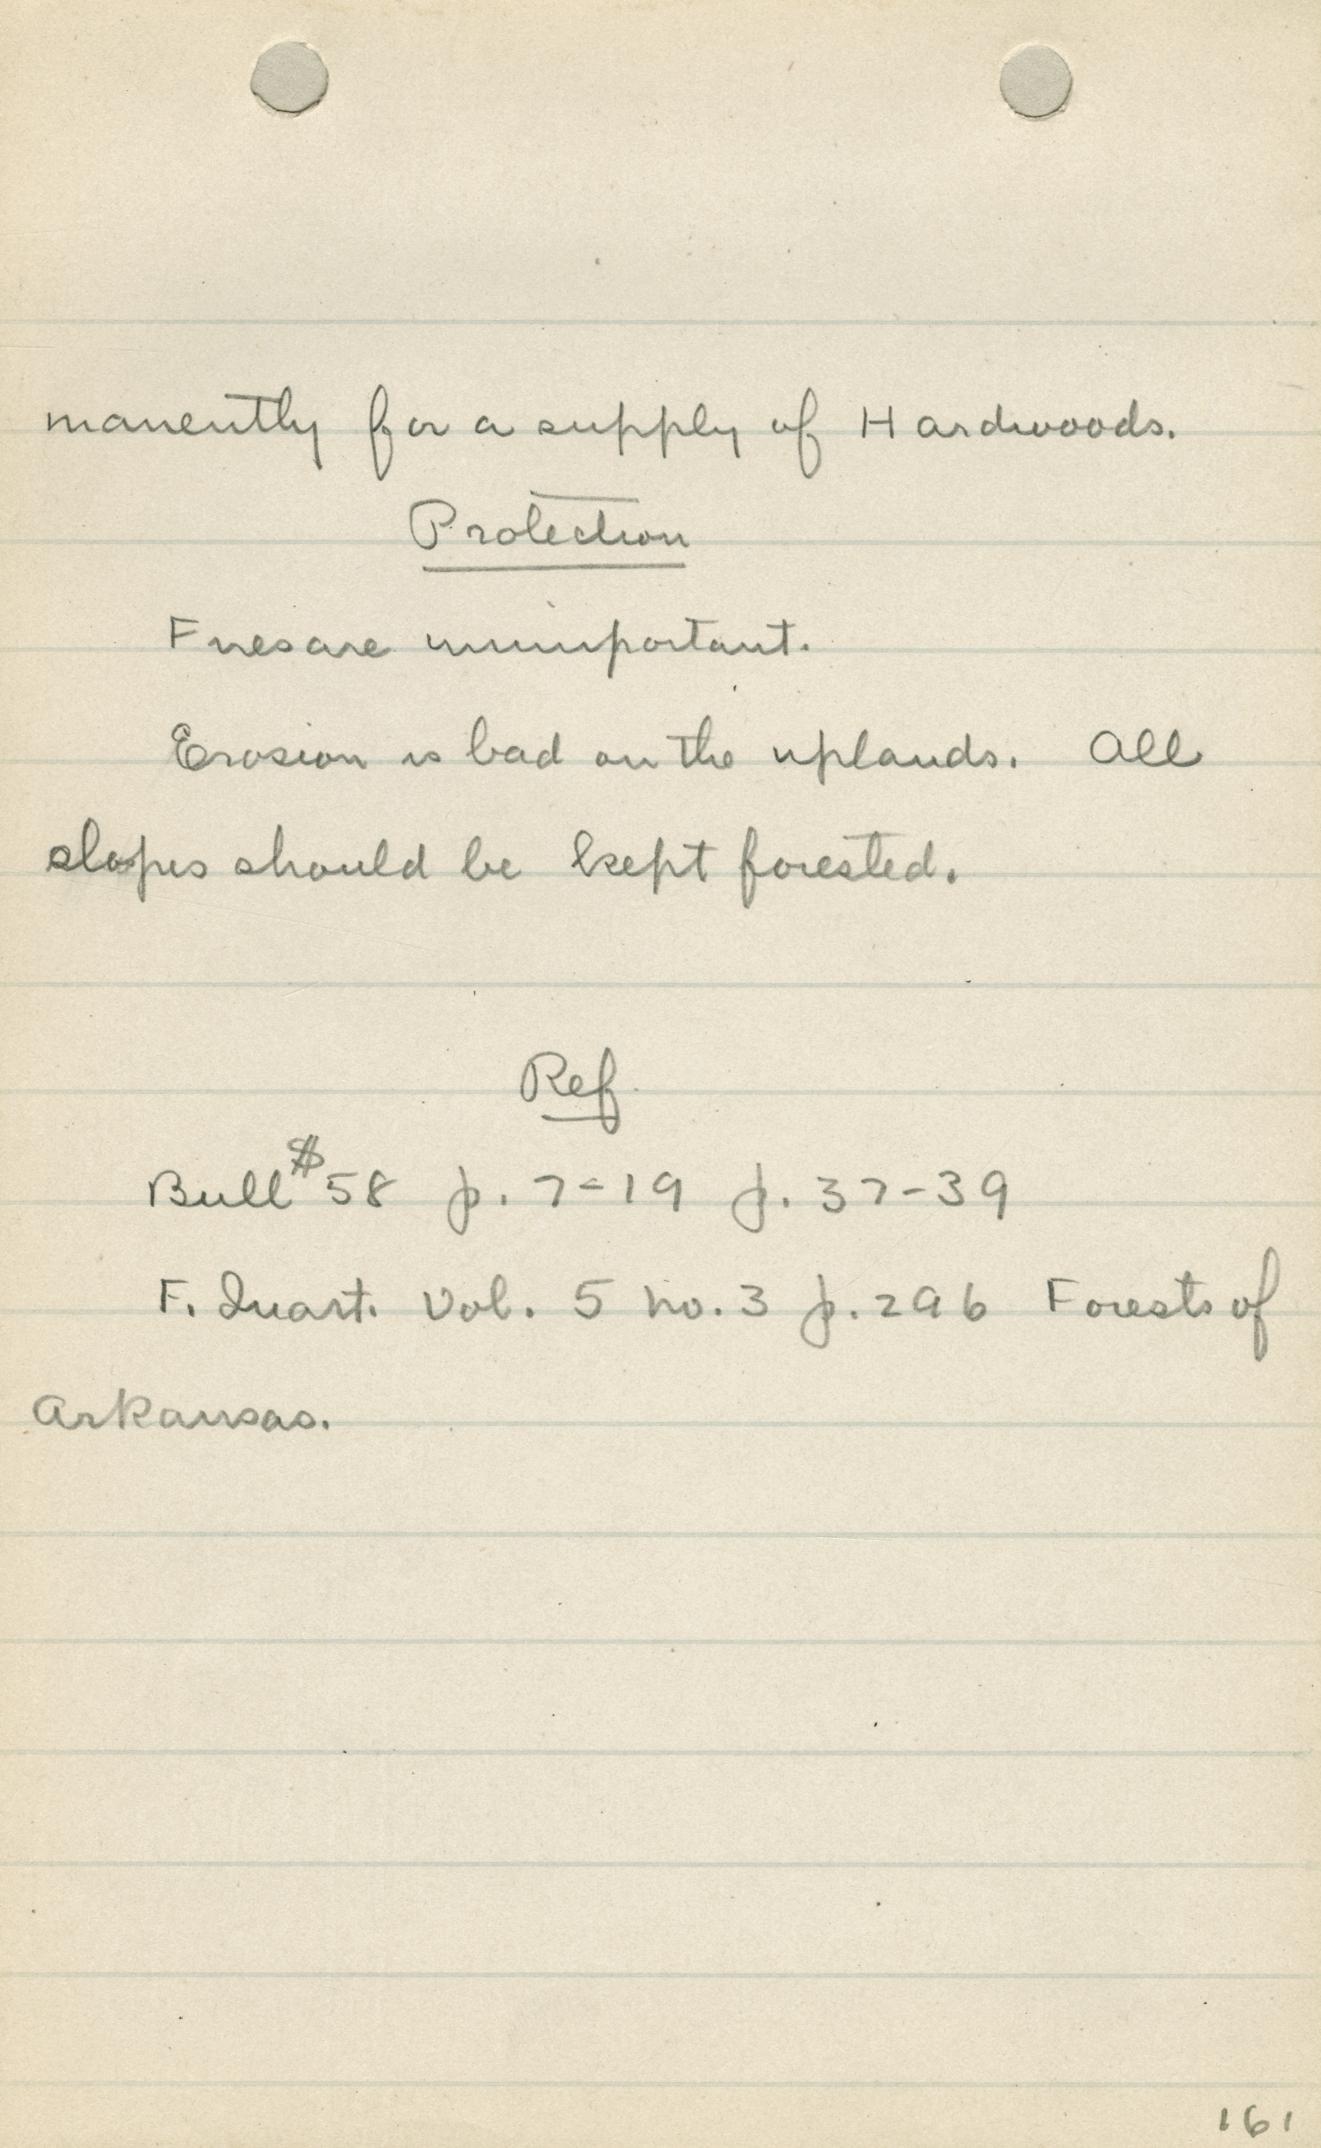 manently for a supply of Hardwoods.
Protection
Fires are unimportant.
Erosion is bad on the uplands. All
slopes should be kept forested.
Ref.
Bull #58 p. 7-19 p. 37-39
F. Quart. Vol. 5 no. 3 p. 296 Forests of
Arkansas.
161